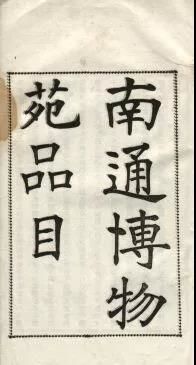 南通博物
苑品目